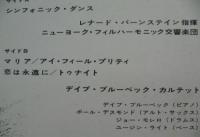 サイドA
シンフォニック・ダンス
レナード・バーンステイン指揮
ニューヨーク・フィルハーモニック交響楽団
サイドB
マリア／アイ・フィール・プリティ
恋は永遠に／トゥナイト
デイブ・ブルーベック・カルテット
デイブ・ブルーベック（ピアノ）
ポール・デスモンド（アルト・サックス）
ジョー・モレロ（ドラムス）
ユージン・ライト（ベース）